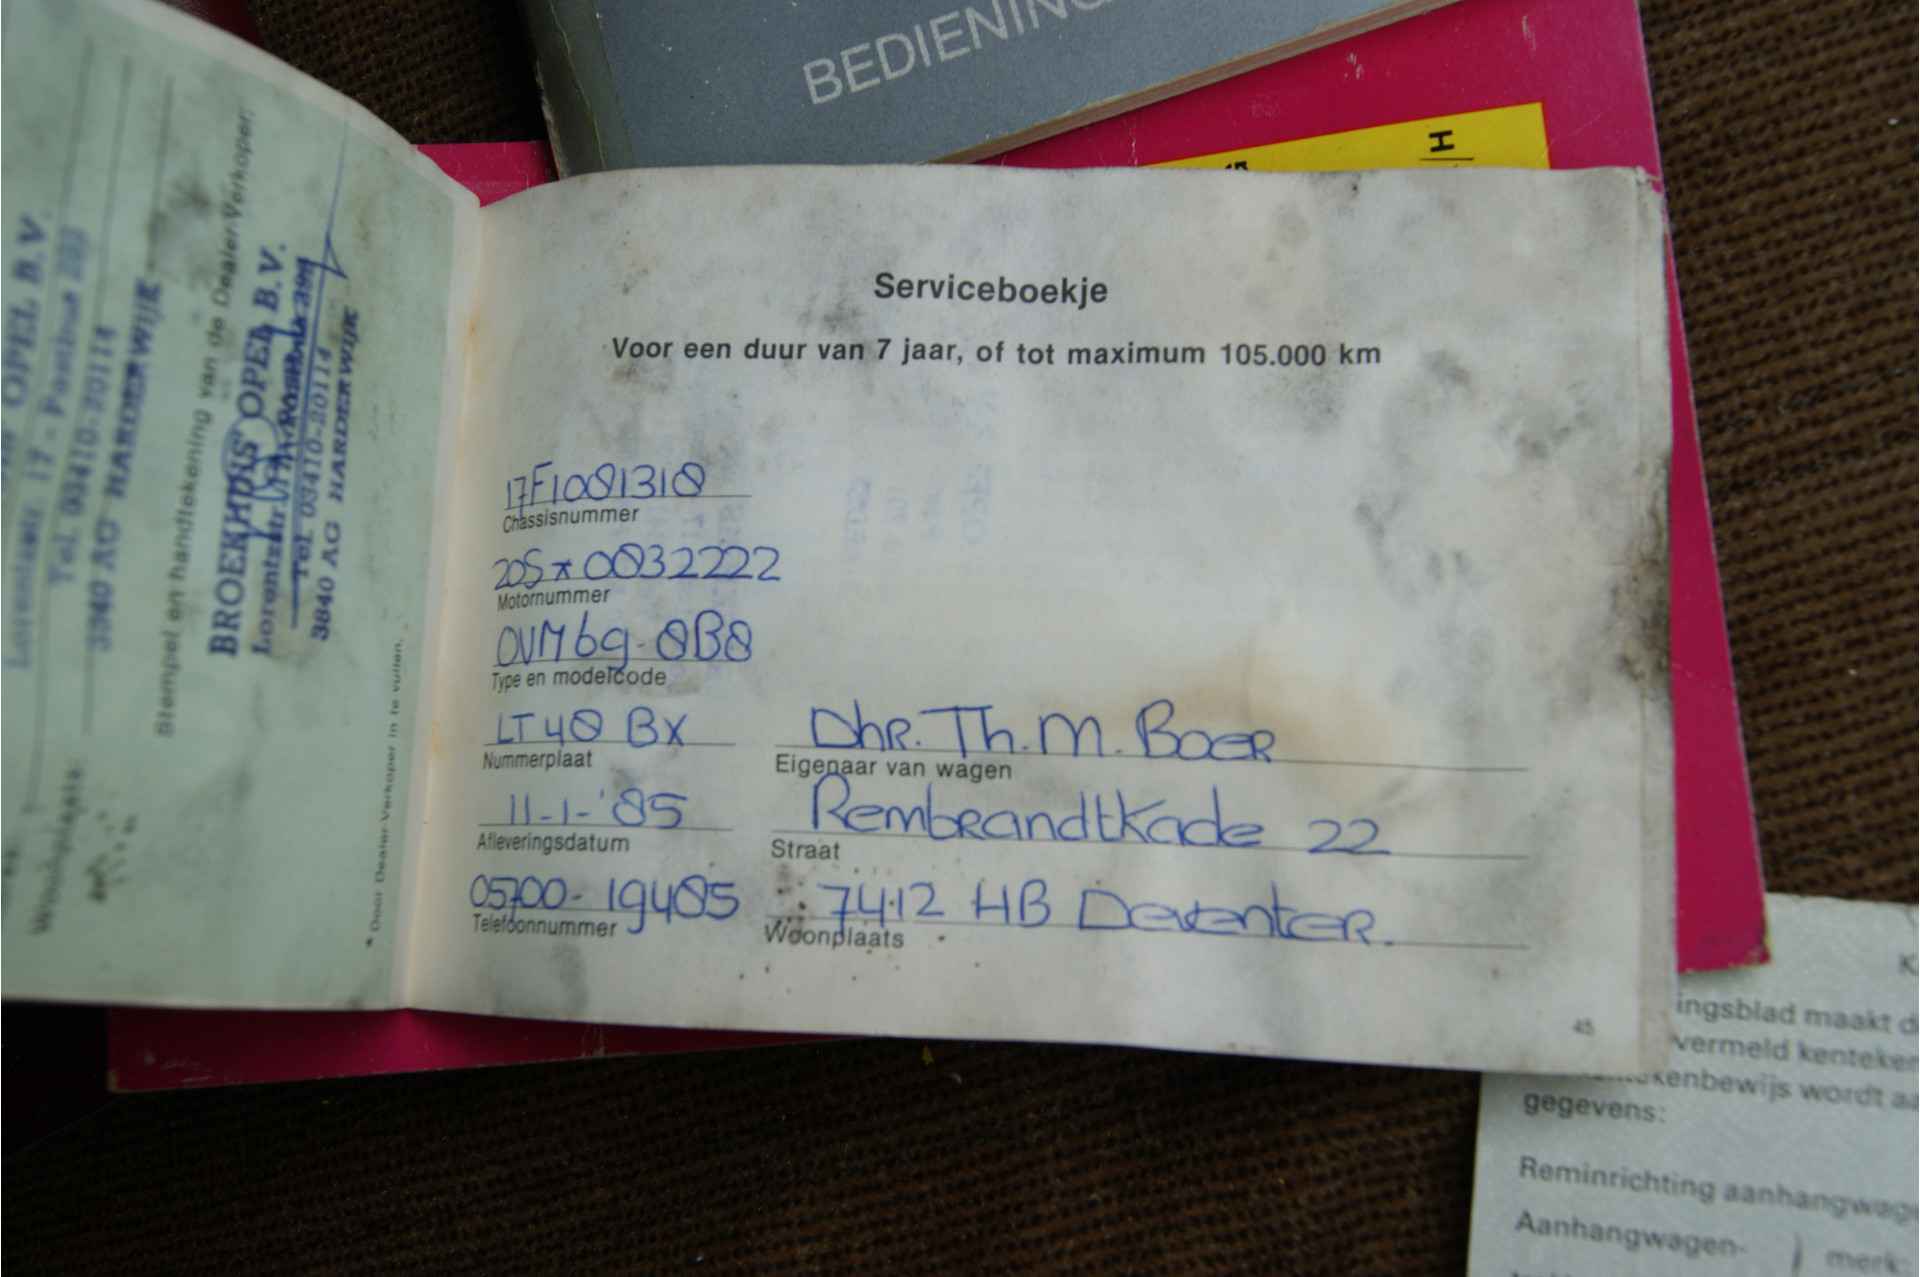 BEDIENING
H
OPEL B.V.
Tel. 03410-20114
3840 AG HARDERWIJK
Stempel en handtekening van de Dealer/Verkoper:
BROEKHUIS OPEL B.V.
Lorentzstr. 17 - Postbus
Tel. 03410-20114
3840 AG HARDERWIJK
Woonplaats:
* Door Dealer/Verkoper in te vullen.
Serviceboekje
Voor een duur van 7 jaar, of tot maximum 105.000 km
17F1081318
Chassisnummer
20S*0832222
Motornummer
OVM69-8B8
Type en modelcode
LT 48 BX
Nummerplaat
Dhr. Th. M. Boer
Eigenaar van wagen
11-1-'85
Afleveringsdatum
Rembrandtkade 22
Straat
05700-19485
Telefoonnummer
7412 HB Deventer.
Woonplaats
45
K
ingsblad maakt d
vermeld kenteken
kenbewijs wordt aa
gegevens:
Reminrichting aanhangwage
Aanhangwagen- } merk: